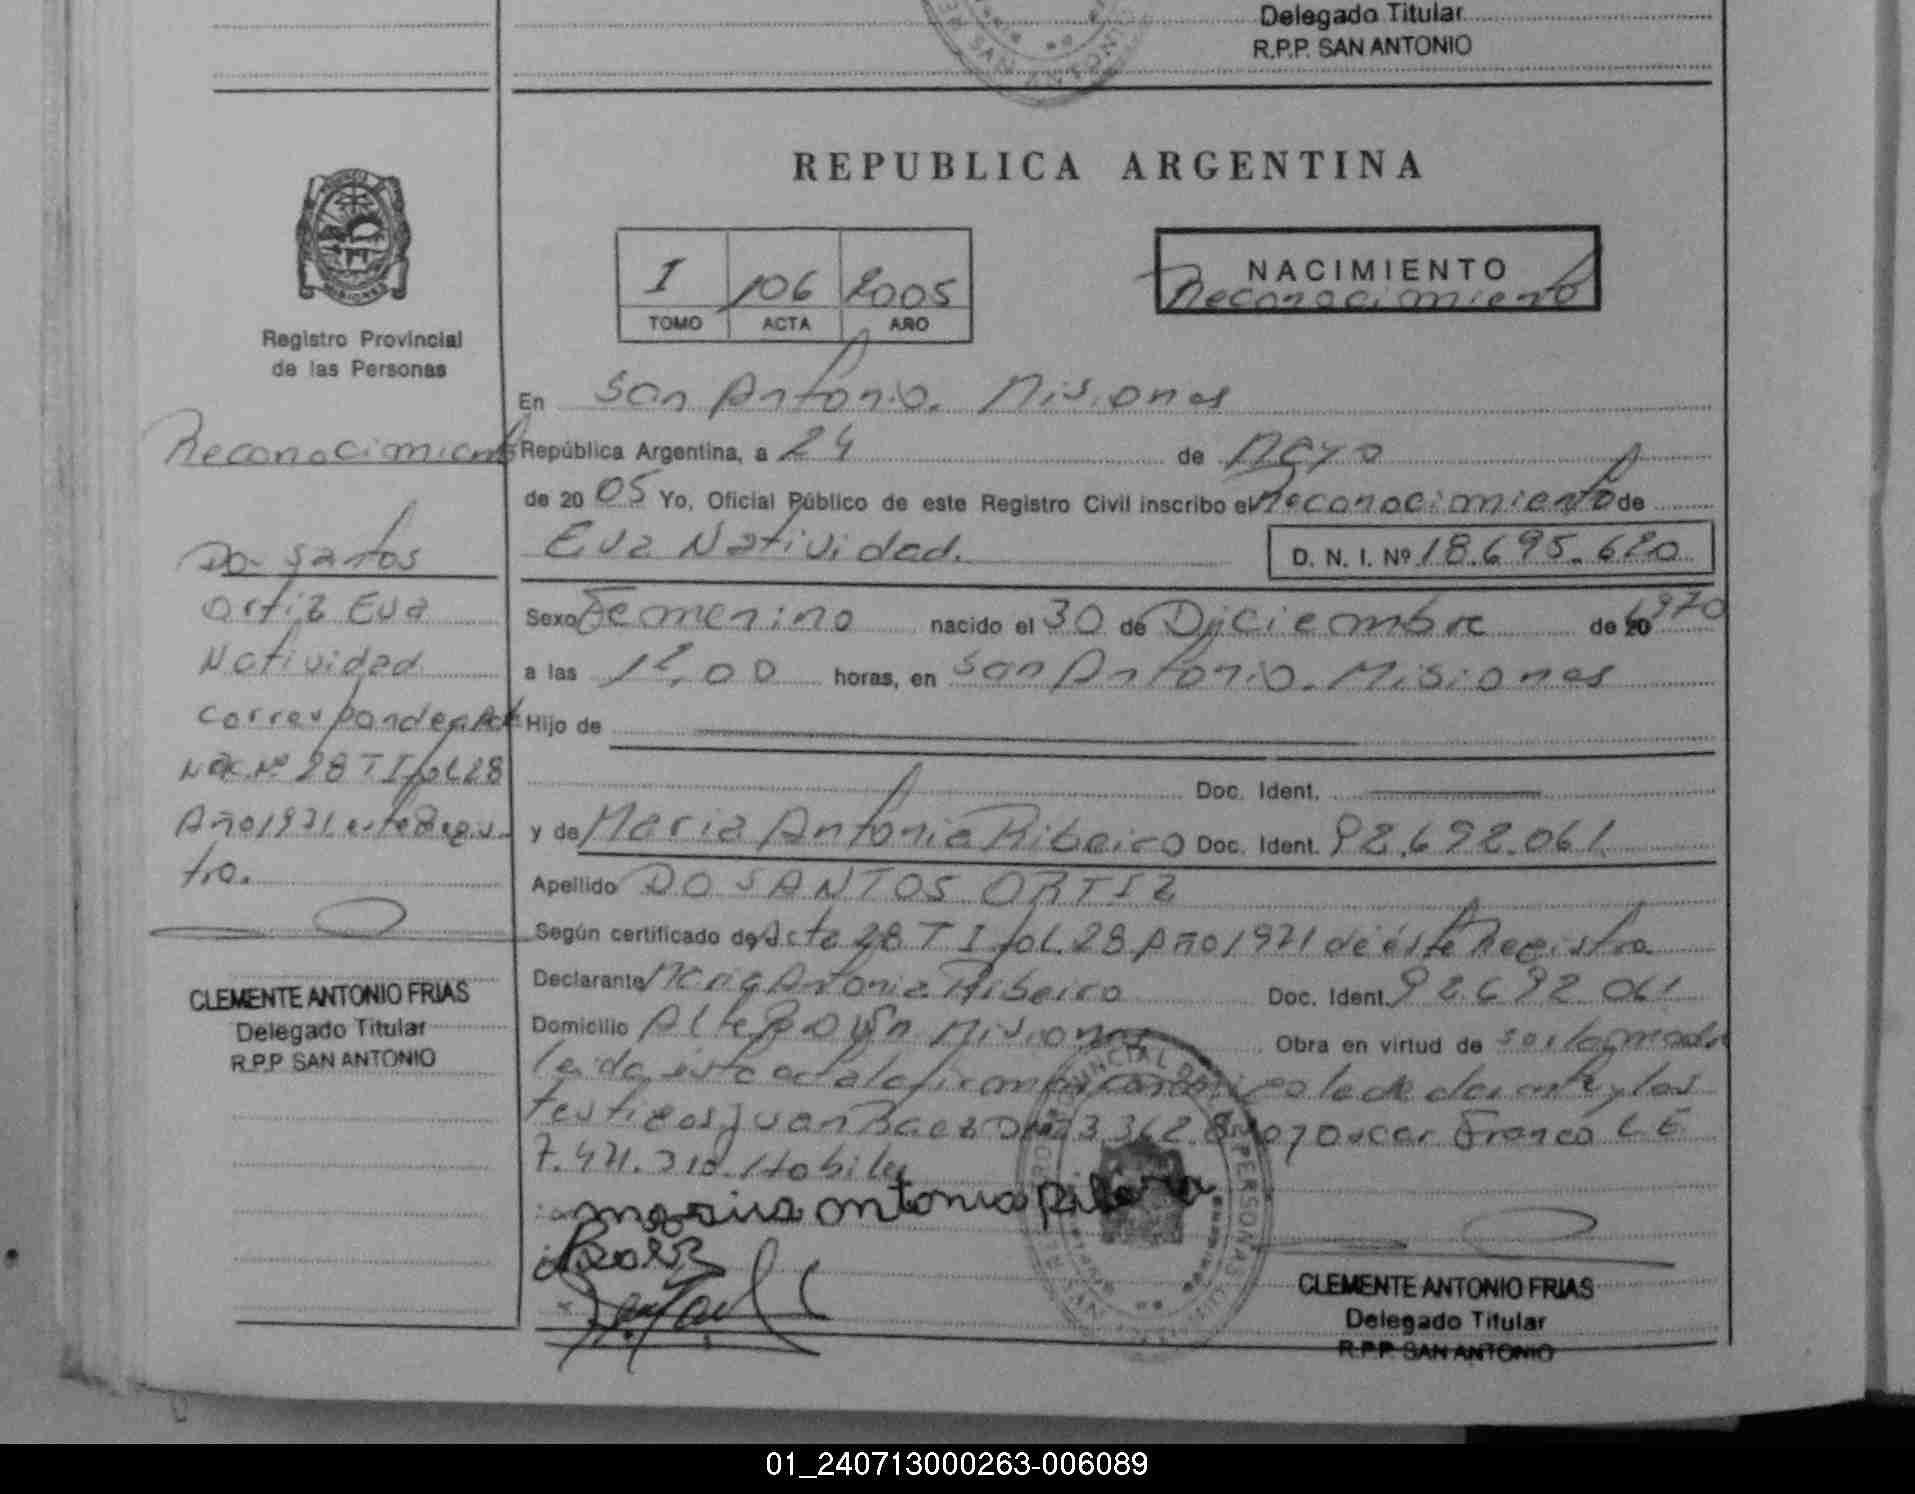 Delegado Titular
R.P.P. SAN ANTONIO
REPUBLICA ARGENTINA
PROVINCIA DE
MISIONES
Registro Provincial
de las Personas
I 106 2005
TOMO ACTA AÑO
NACIMIENTO
Reconocimiento
Reconocimiento
Do Santos
Ortiz Eva
Natividad
Corresponde a Acta
Nac. Nº 28 T I fol. 28
Año 1971 este Regis-
tro.
CLEMENTE ANTONIO FRIAS
Delegado Titular
R.P.P. SAN ANTONIO
En San Antonio. Misiones
República Argentina, a 24 de Mayo
de 20 05 Yo, Oficial Público de este Registro Civil inscribo el Reconocimiento de
Eva Natividad. D. N. I. Nº 18.695.620
Sexo Femenino nacido el 30 de Diciembre de 1970
a las 12,00 horas, en San Antonio. Misiones
Hijo de
Doc. Ident.
y de Maria Antonia Ribeiro Doc. Ident. 92.692.061.
Apellido DO SANTOS ORTIZ
Según certificado de Acta 28 T I fol. 28 Año 1971 de éste Registro
Declarante Maria Antonia Ribeiro Doc. Ident. 92.692.061
Domicilio Misiones Obra en virtud de ser la madre
leida ésta acta la firman conmigo la declarante y los
testigos Juan Baez y Oscar Franco L.E.
7.471.310. Hobiles
maria antonia
Baez
CLEMENTE ANTONIO FRIAS
Delegado Titular
R.P.P. SAN ANTONIO
01_240713000263-006089